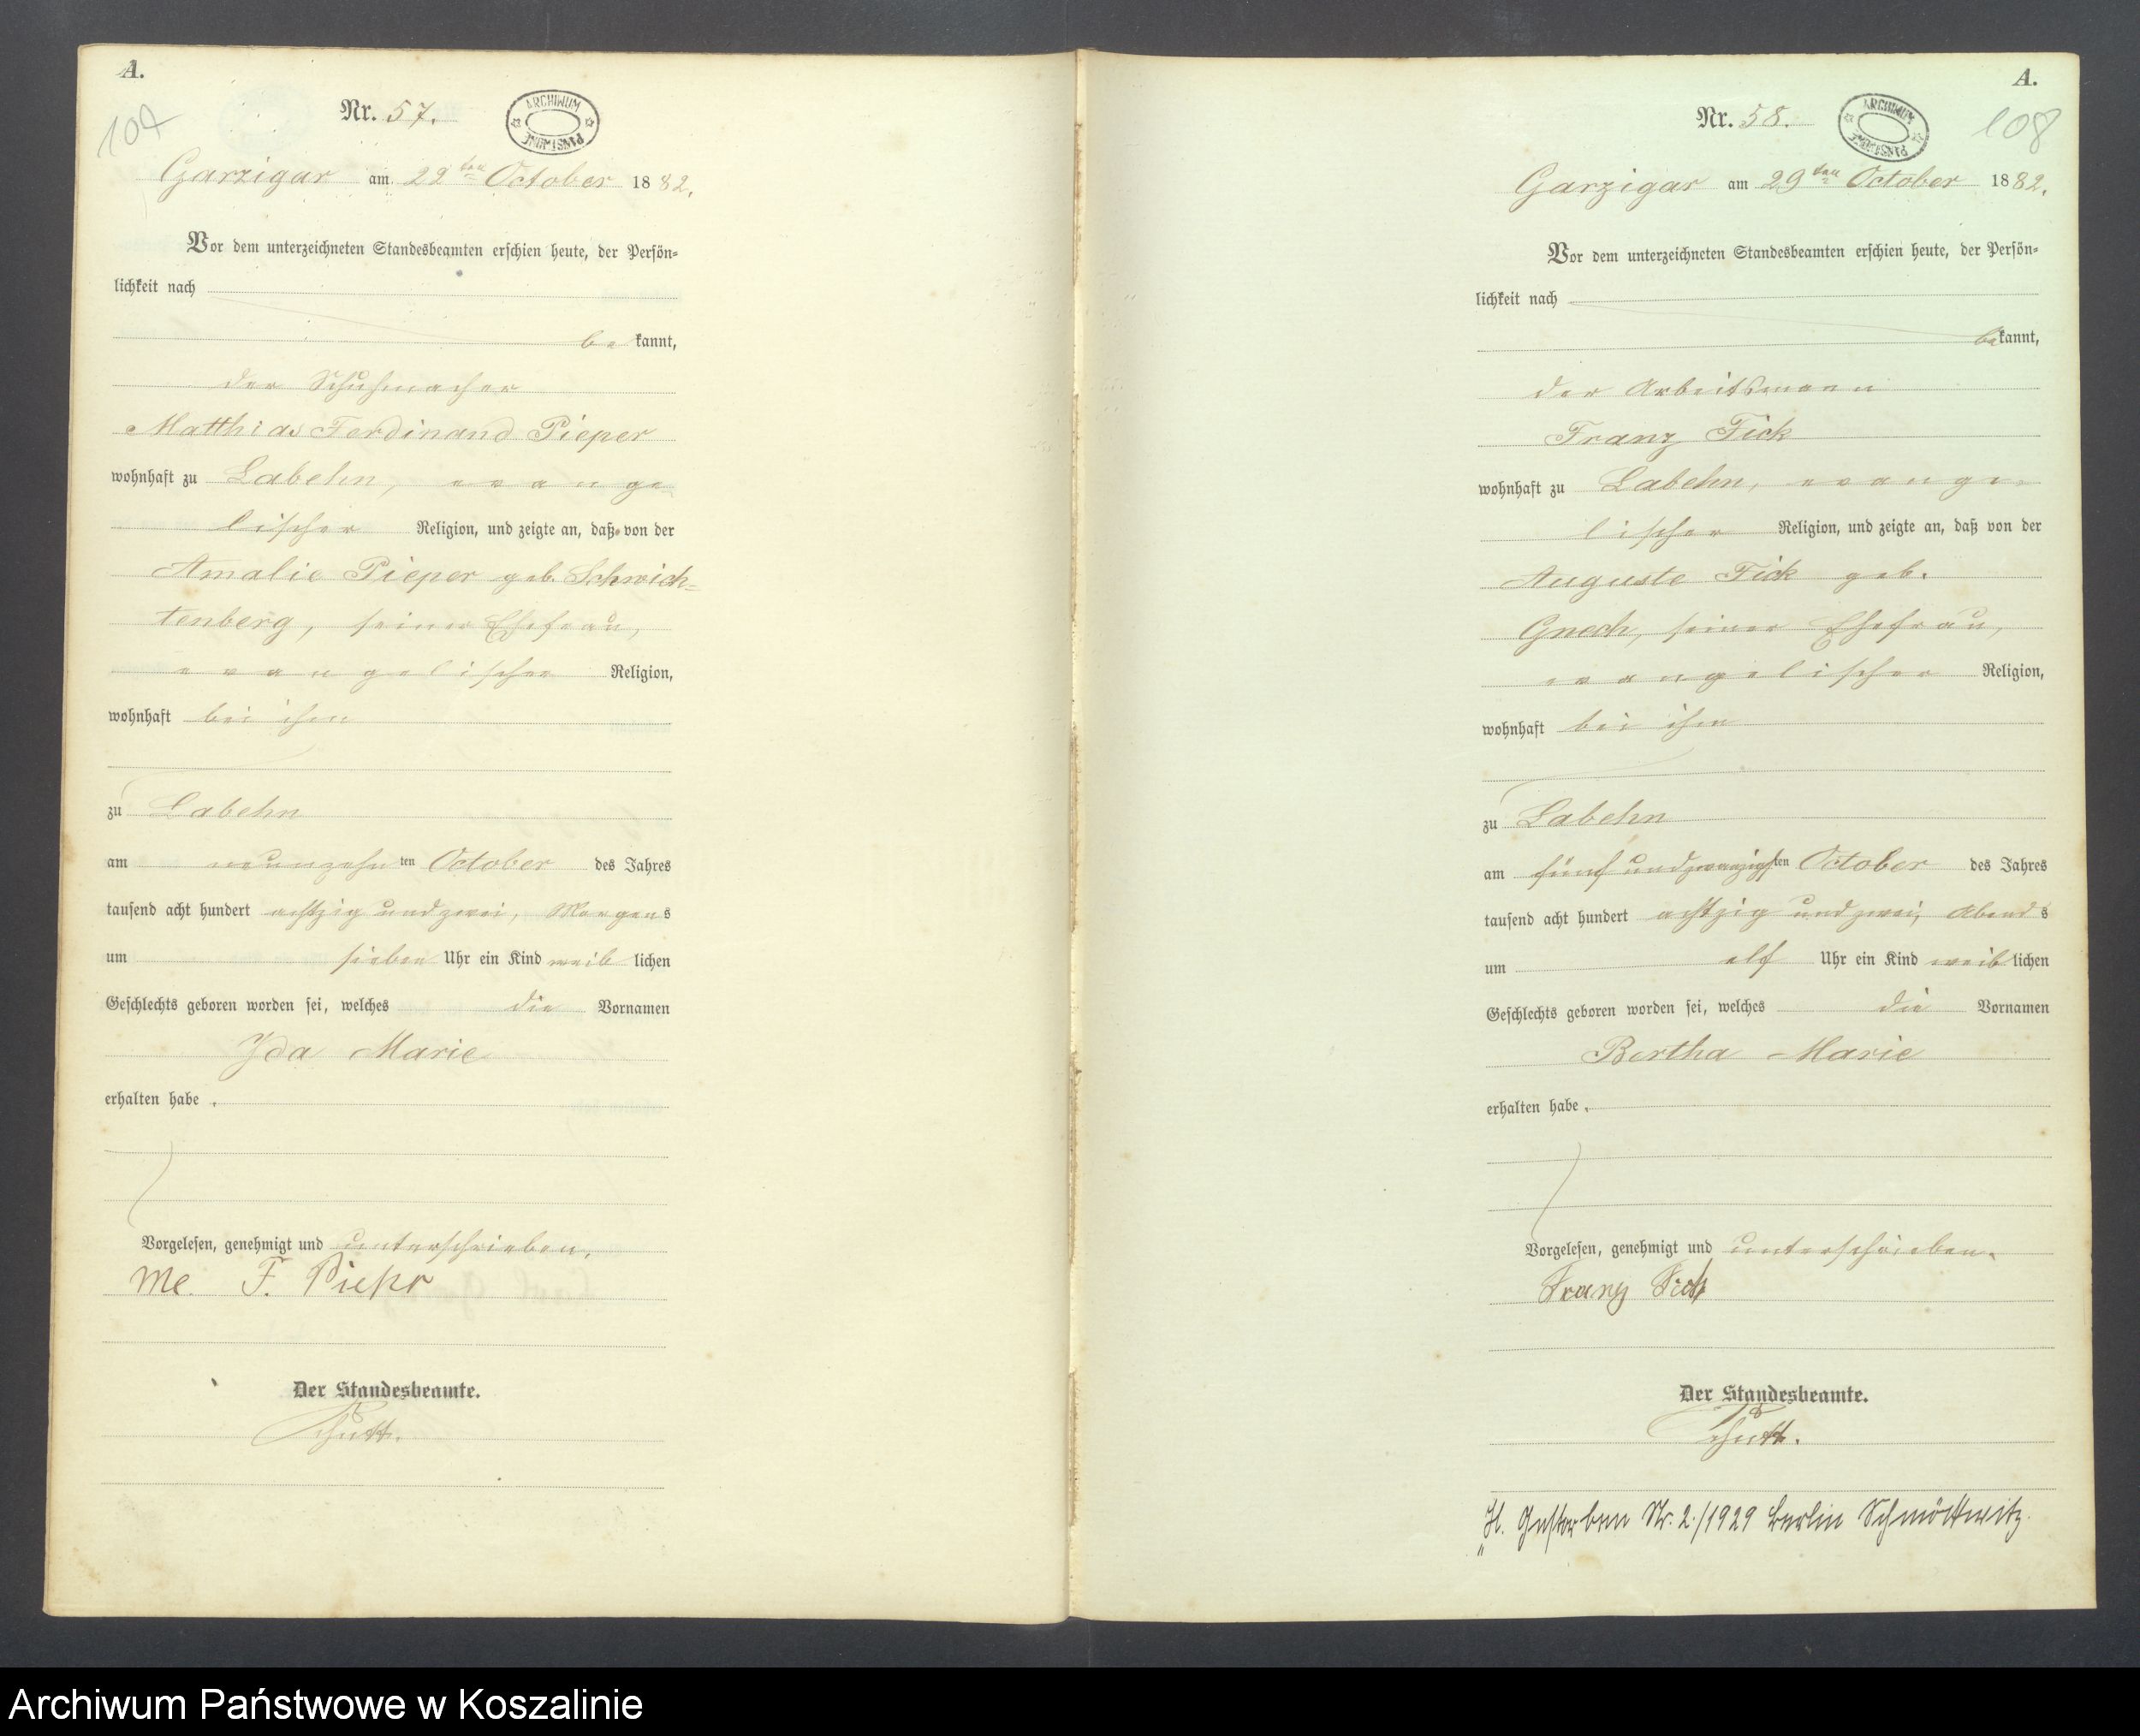 A.
107
Nr. 57.
ARCHIWUM PAŃSTWOWE
Garzigar am 22ten October 1882.
Vor dem unterzeichneten Standesbeamten erschien heute, der Persön-
lichkeit nach
be kannt,
der Schuhmacher
Matthias Ferdinand Pieper
wohnhaft zu Labehn, evange
lischer Religion, und zeigte an, daß von der
Amalie Pieper geb. Schwich-
tenberg, seiner Ehefrau,
evangelischer Religion,
wohnhaft bei ihm
zu Labehn
am neunzehnten October des Jahres
tausend acht hundert achtzig und zwei, Morgens
um sieben Uhr ein Kind weib lichen
Geschlechts geboren worden sei, welches die Vornamen
Ida Marie
erhalten habe.
Vorgelesen, genehmigt und unterschrieben.
F. Piepr
Der Standesbeamte.
Schutt.
A.
108
Nr. 58.
ARCHIWUM PAŃSTWOWE
Garzigar am 29ten October 1882.
Vor dem unterzeichneten Standesbeamten erschien heute, der Persön-
lichkeit nach
bekannt,
der Arbeitsmann
Franz Fick
wohnhaft zu Labehn, evange-
lischer Religion, und zeigte an, daß von der
Auguste Fick geb.
Gnech, seiner Ehefrau,
evangelischer Religion,
wohnhaft bei ihm
zu Labehn
am fünf und zwanzigsten October des Jahres
tausend acht hundert achtzig und zwei, Abends
um elf Uhr ein Kind weiblichen
Geschlechts geboren worden sei, welches die Vornamen
Bertha Marie
erhalten habe.
Vorgelesen, genehmigt und unterschrieben.
Franz Fick
Der Standesbeamte.
Schutt.
Gestorben Nr. 2/1929 Berlin Schmöckwitz.
Archiwum Państwowe w Koszalinie